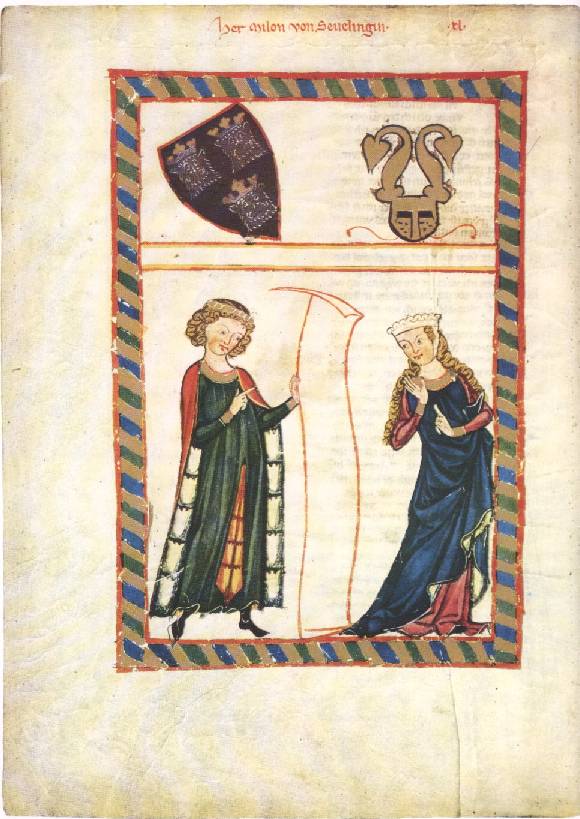 Her Milon von Seuelingin· ·xl·